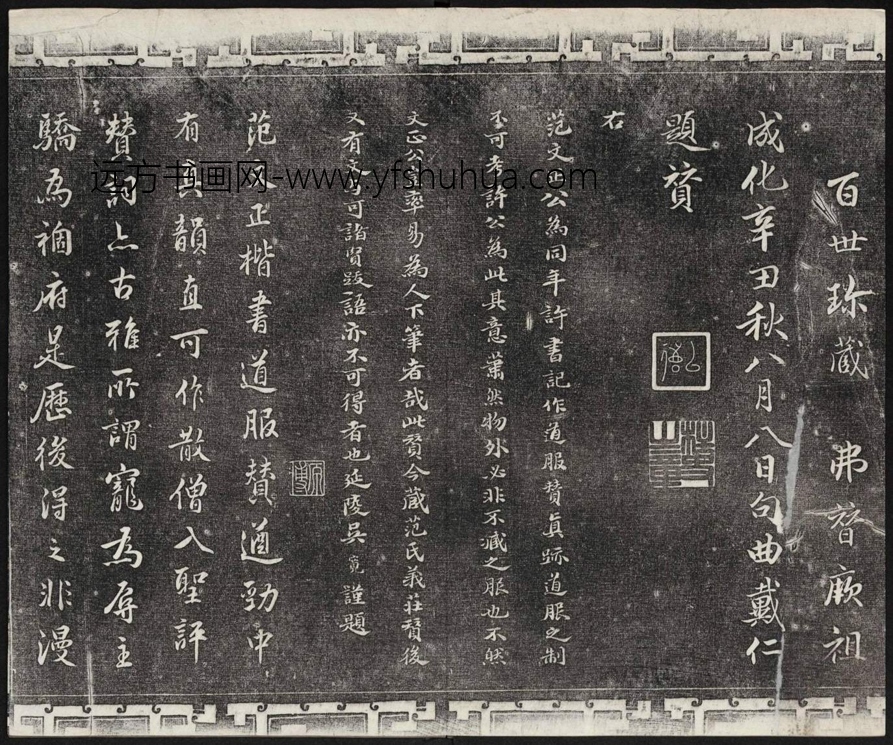 百世珍藏 弗替厥祖
成化辛丑秋八月八日句曲戴仁
題贊
右
范文正公為同年許書記作道服贊真跡道服之制
不可考許公為此其意蕭然物外必非不滅之服也不然
文正公豈率易為人下筆者哉此贊今藏范氏義莊贊後
又有文與可諸賢跋語亦不可得者也延陵吳寬謹題
原博
范文正楷書道服贊遒勁中
有真韻直可作散僧入聖評
贊詞亦古雅所謂寵為辱主
驕為禍府是歷後得之非漫
远方书画网-www.yfshuhua.com